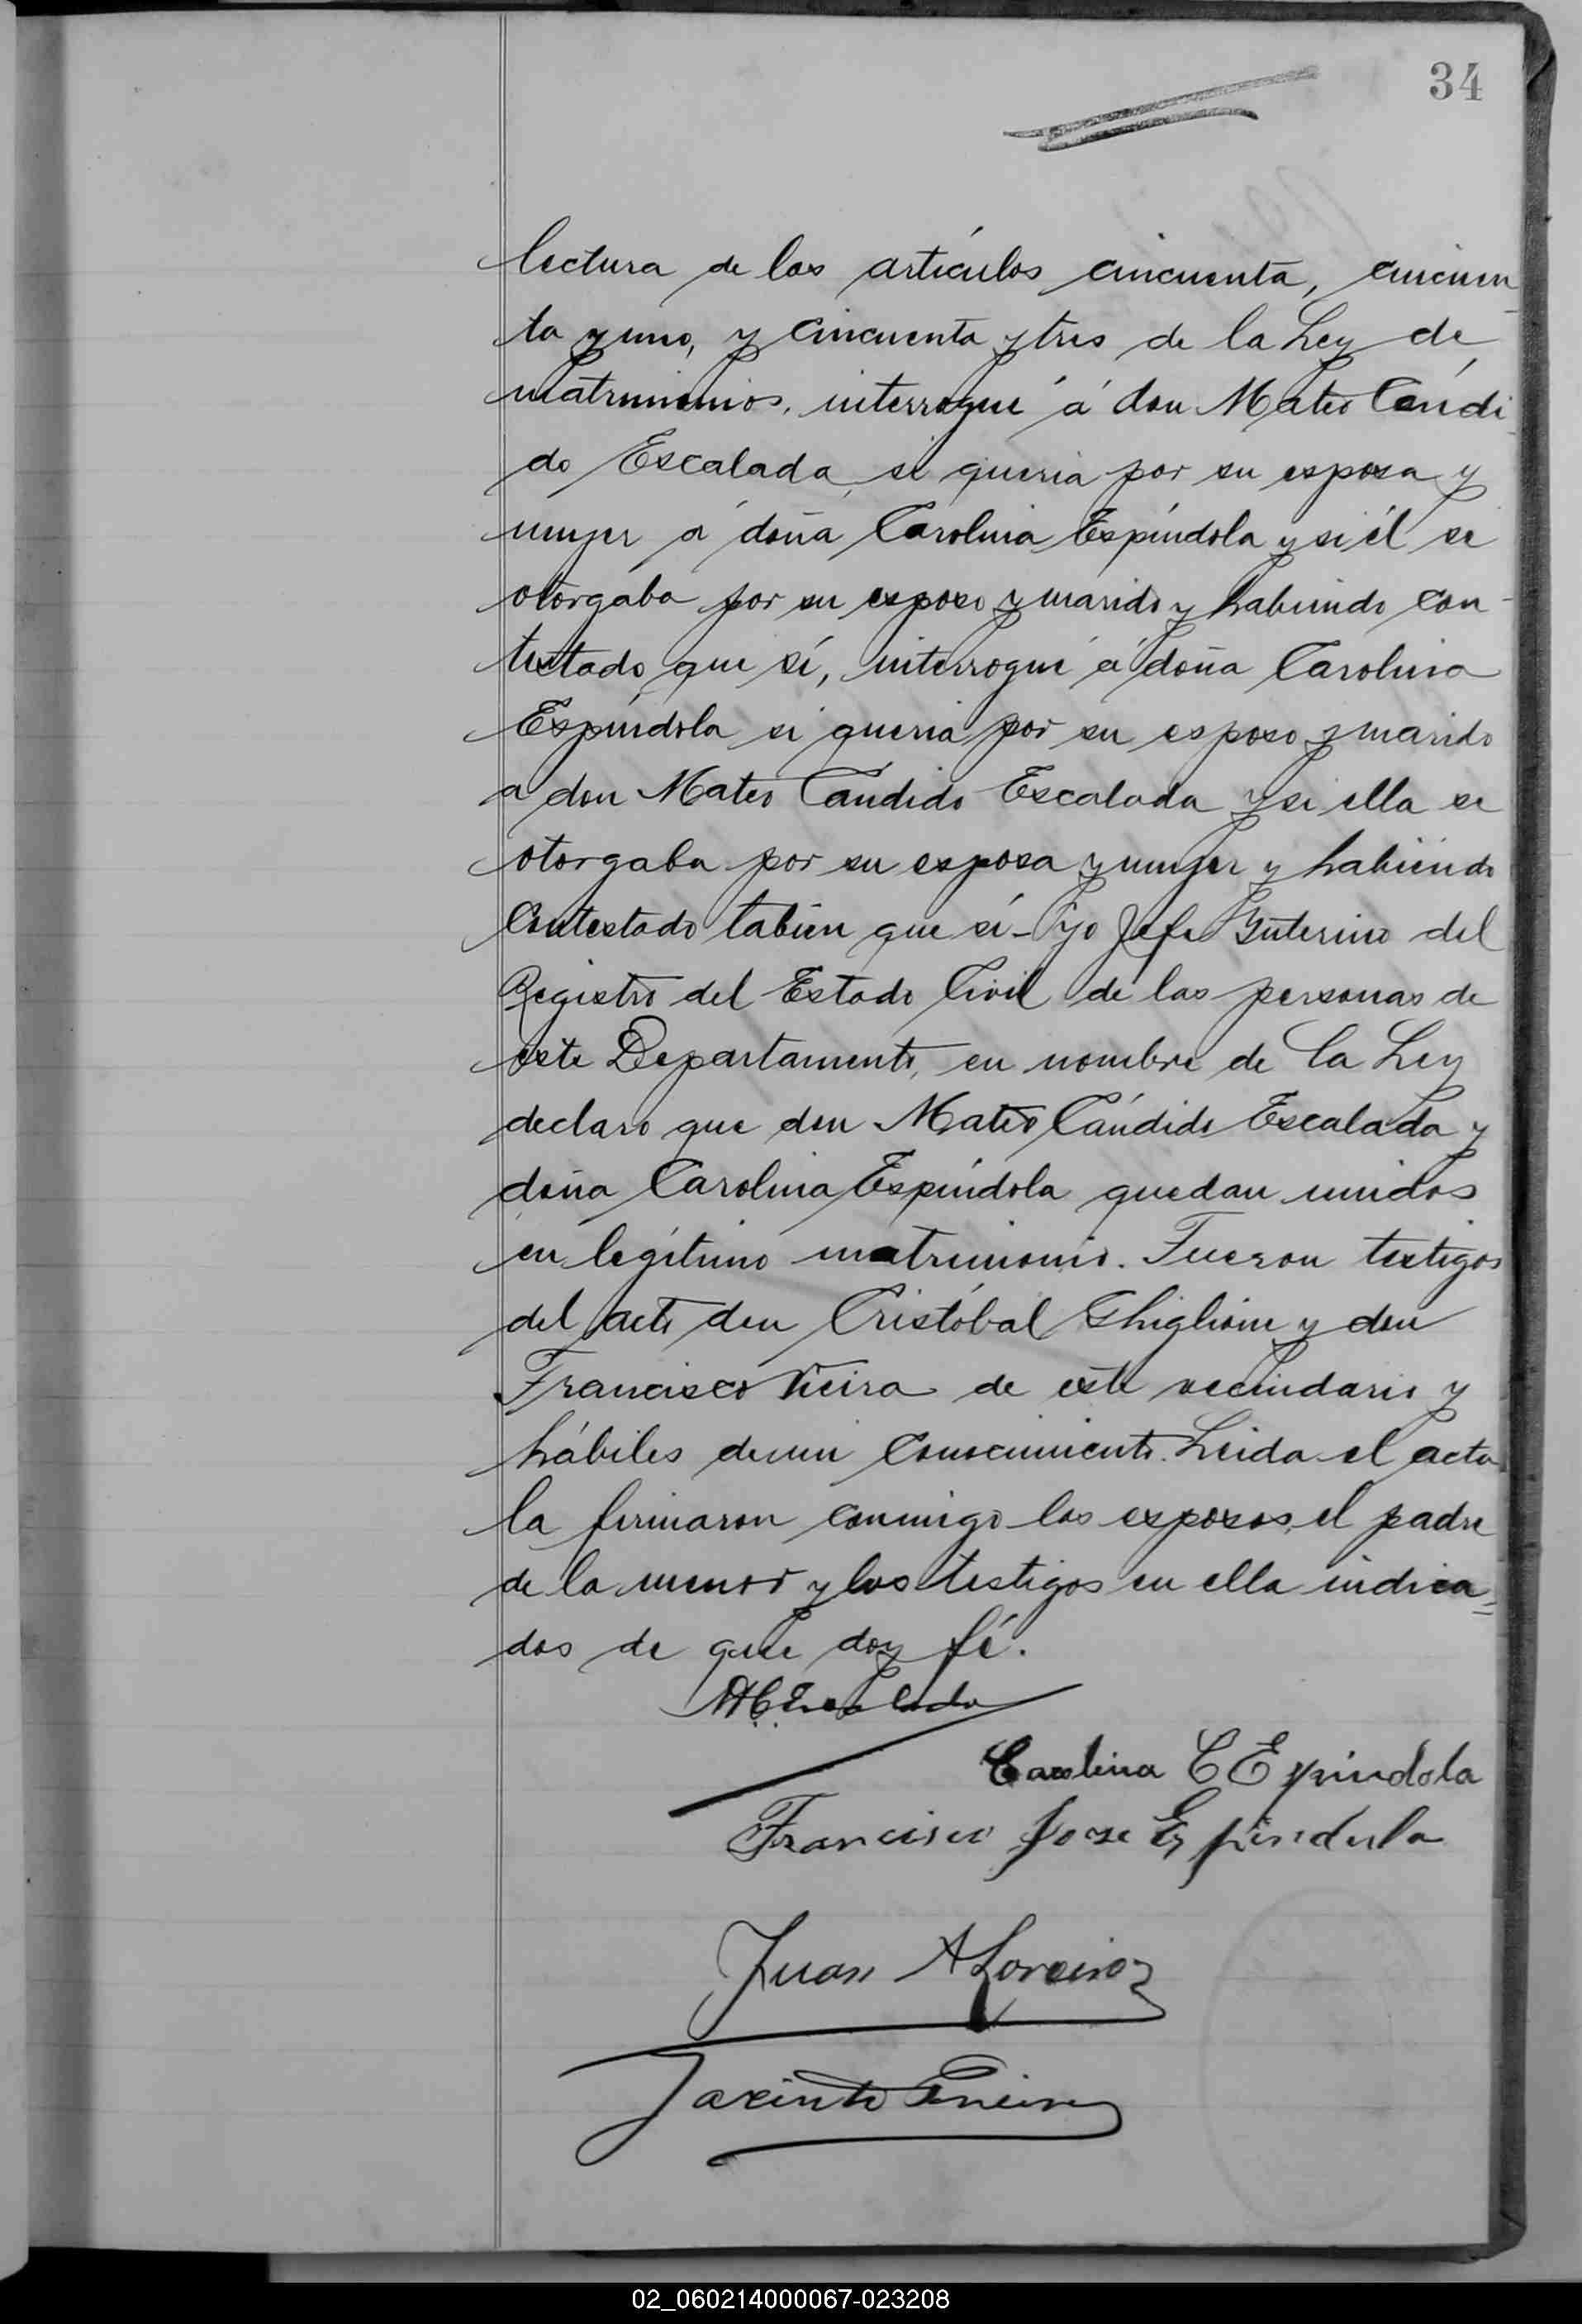 34
lectura de los artículos cincuenta, cincuen-
ta y uno, y cincuenta y tres de la Ley de
matrimonios, interrogué á don Mateo Cándi
do Escalada, si queria por su esposa y
mujer á doña Carolina Espíndola y si él se
otorgaba por su esposo y marido y habiendo con-
testado que sí, interrogué á doña Carolina
Espíndola si queria por su esposo y marido
a don Mateo Cándido Escalada y si ella se
otorgaba por su esposa y mujer y habiendo
Contestado tabien que sí - Yo Jefe Interino del
Registro del Estado Civil de las personas de
este Departamento, en nombre de la Ley
declaro que don Mateo Cándido Escalada y
doña Carolina Espíndola quedan unidos
en legítimo matrimonio. Fueron testigos
del acto don Cristóbal Ghiglione y don
Francisco Vieira de este vecindario y
hábiles de mi Conocimiento. Leida el acta
la firmaron conmigo los esposos, el padre
de la menor y los testigos en ella indica=
dos de que doy fé.
MCEscalada
Carolina C Espindola
Francisco Jose Espindula
Juan A Loreiro
Jacinto
02_060214000067-023208